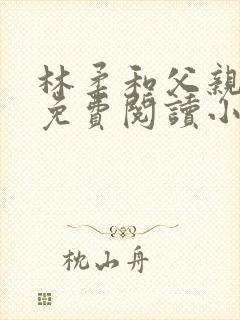 林柔和父親
免費閱讀小
枕山舟